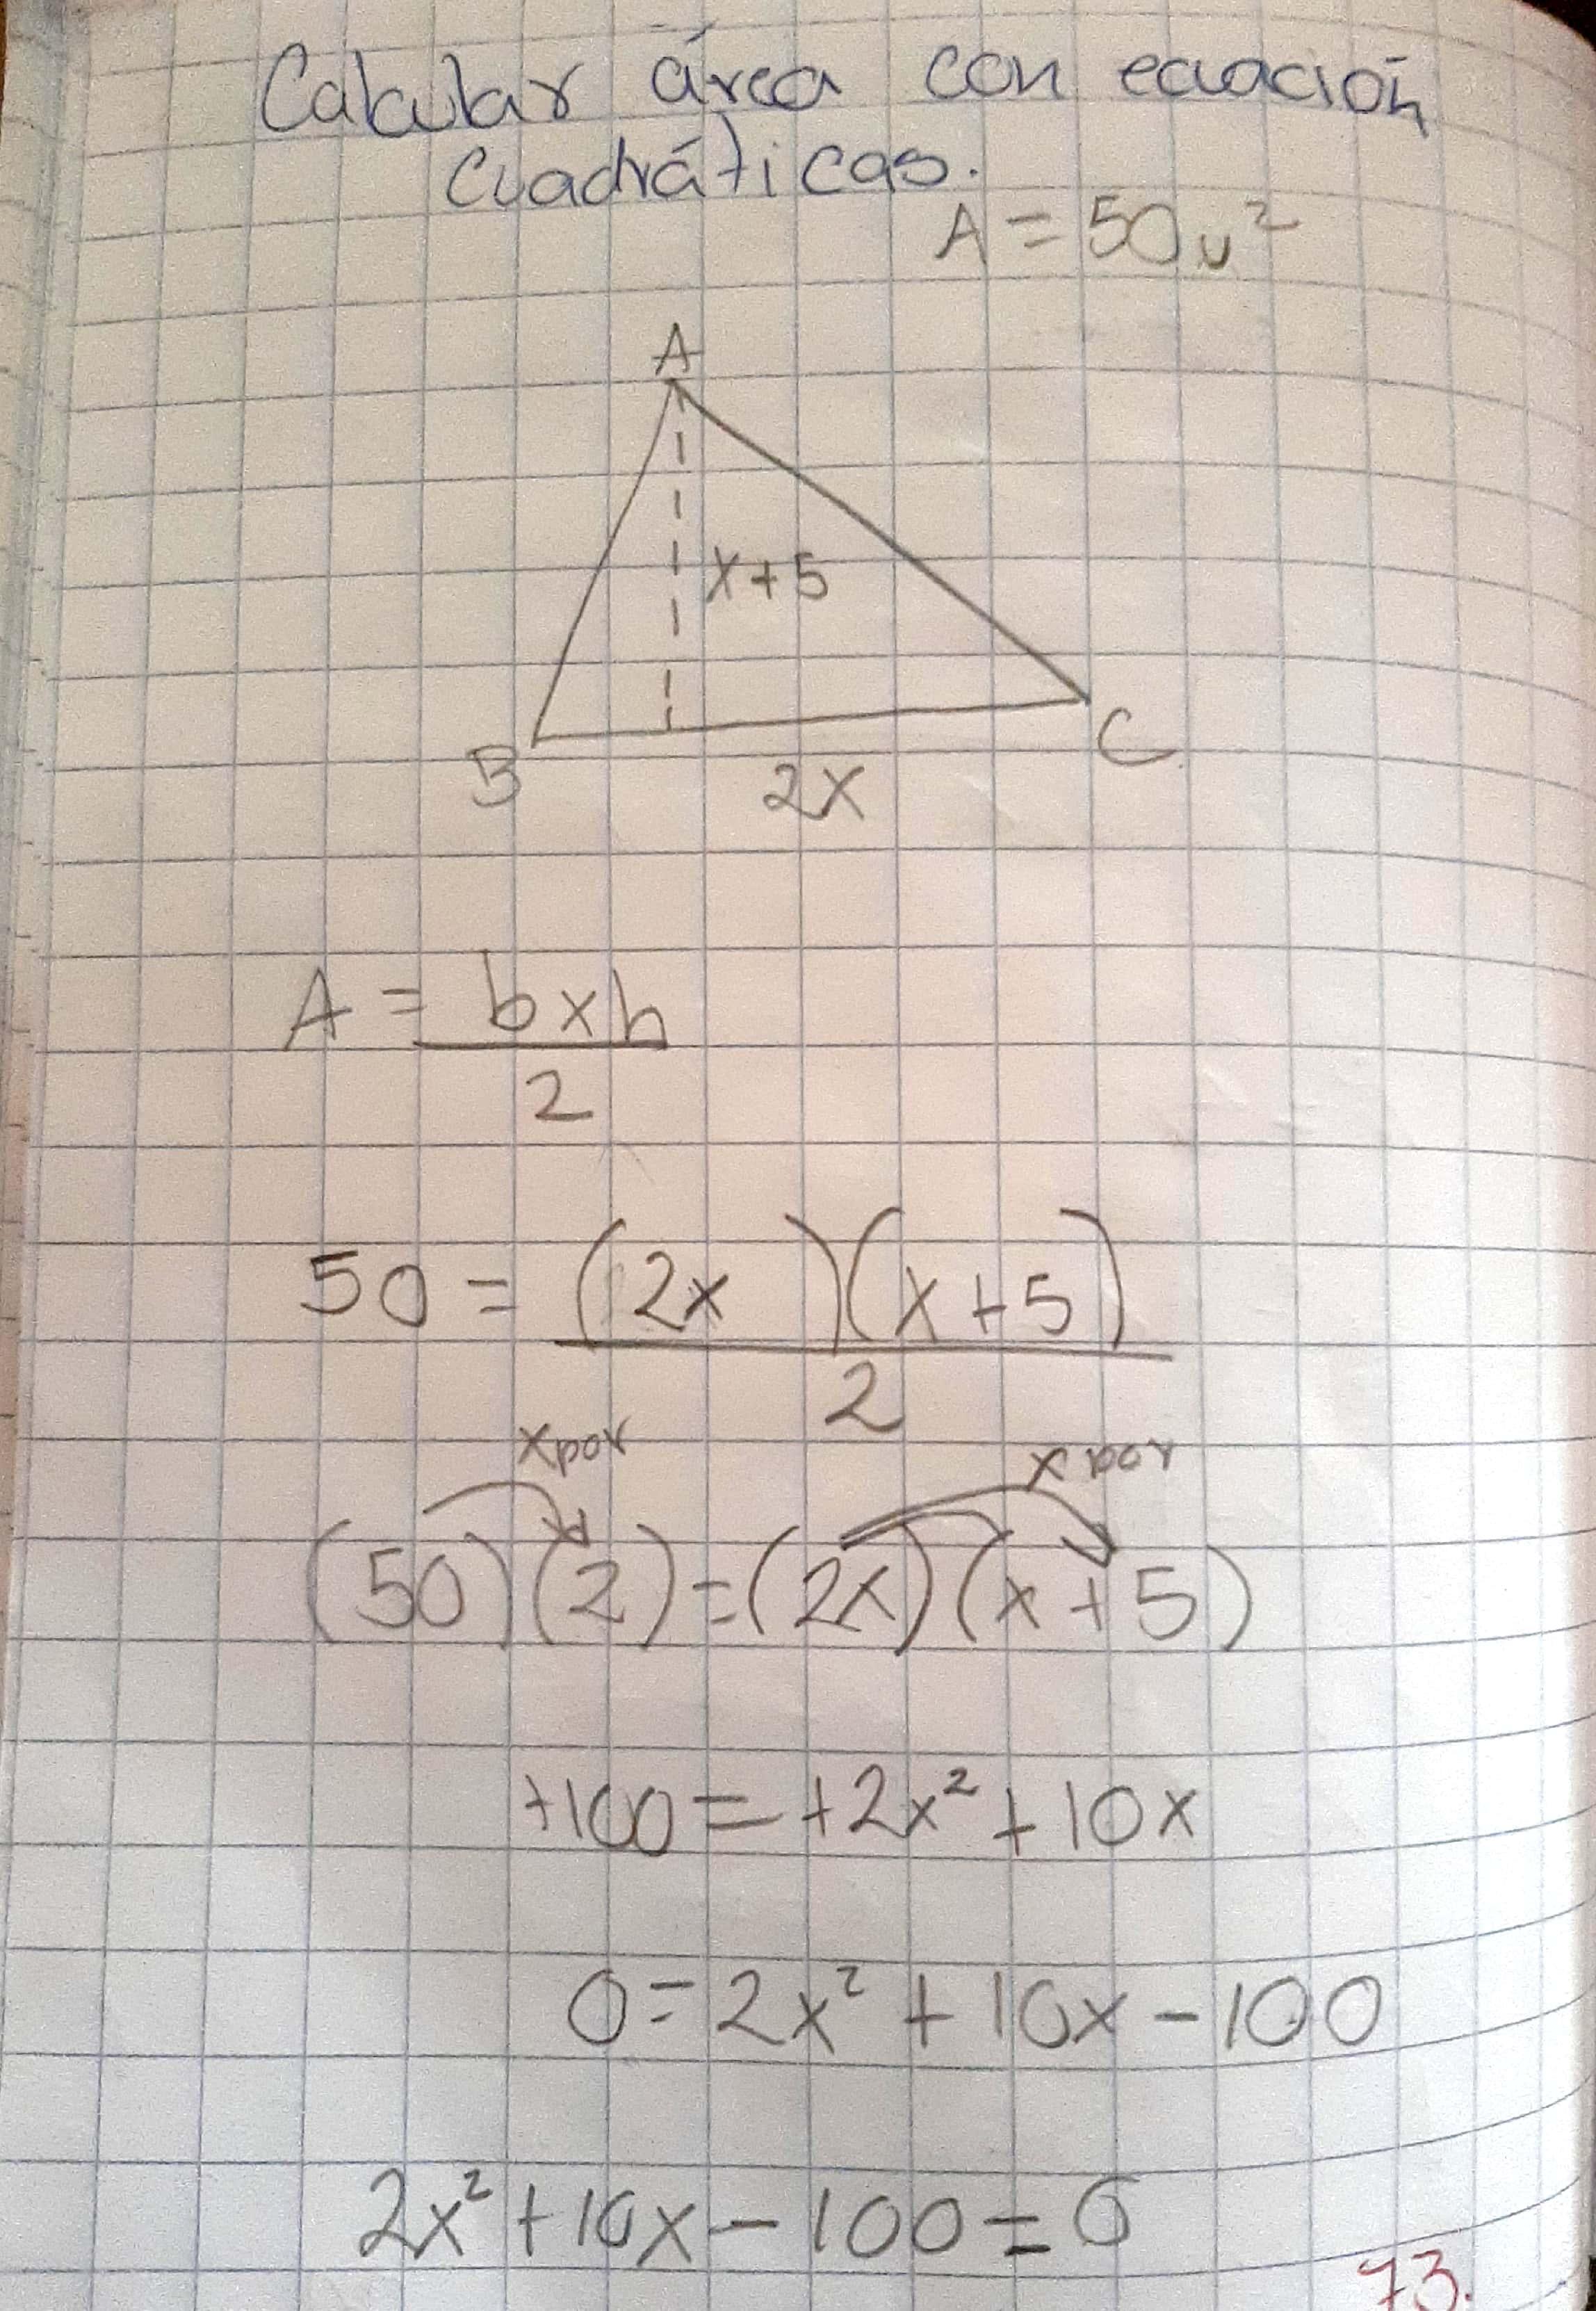 Calcular área con ecuación
cuadráticas.
A = 50u²
A
x+5
B
C
2x
A = b x h
2
50 = (2x )(x+5)
2
x por
x por
(50)(2)=(2x)(x+5)
+100 = +2x² + 10x
0 = 2x² + 10x - 100
2x² + 10x - 100 = 0
73.